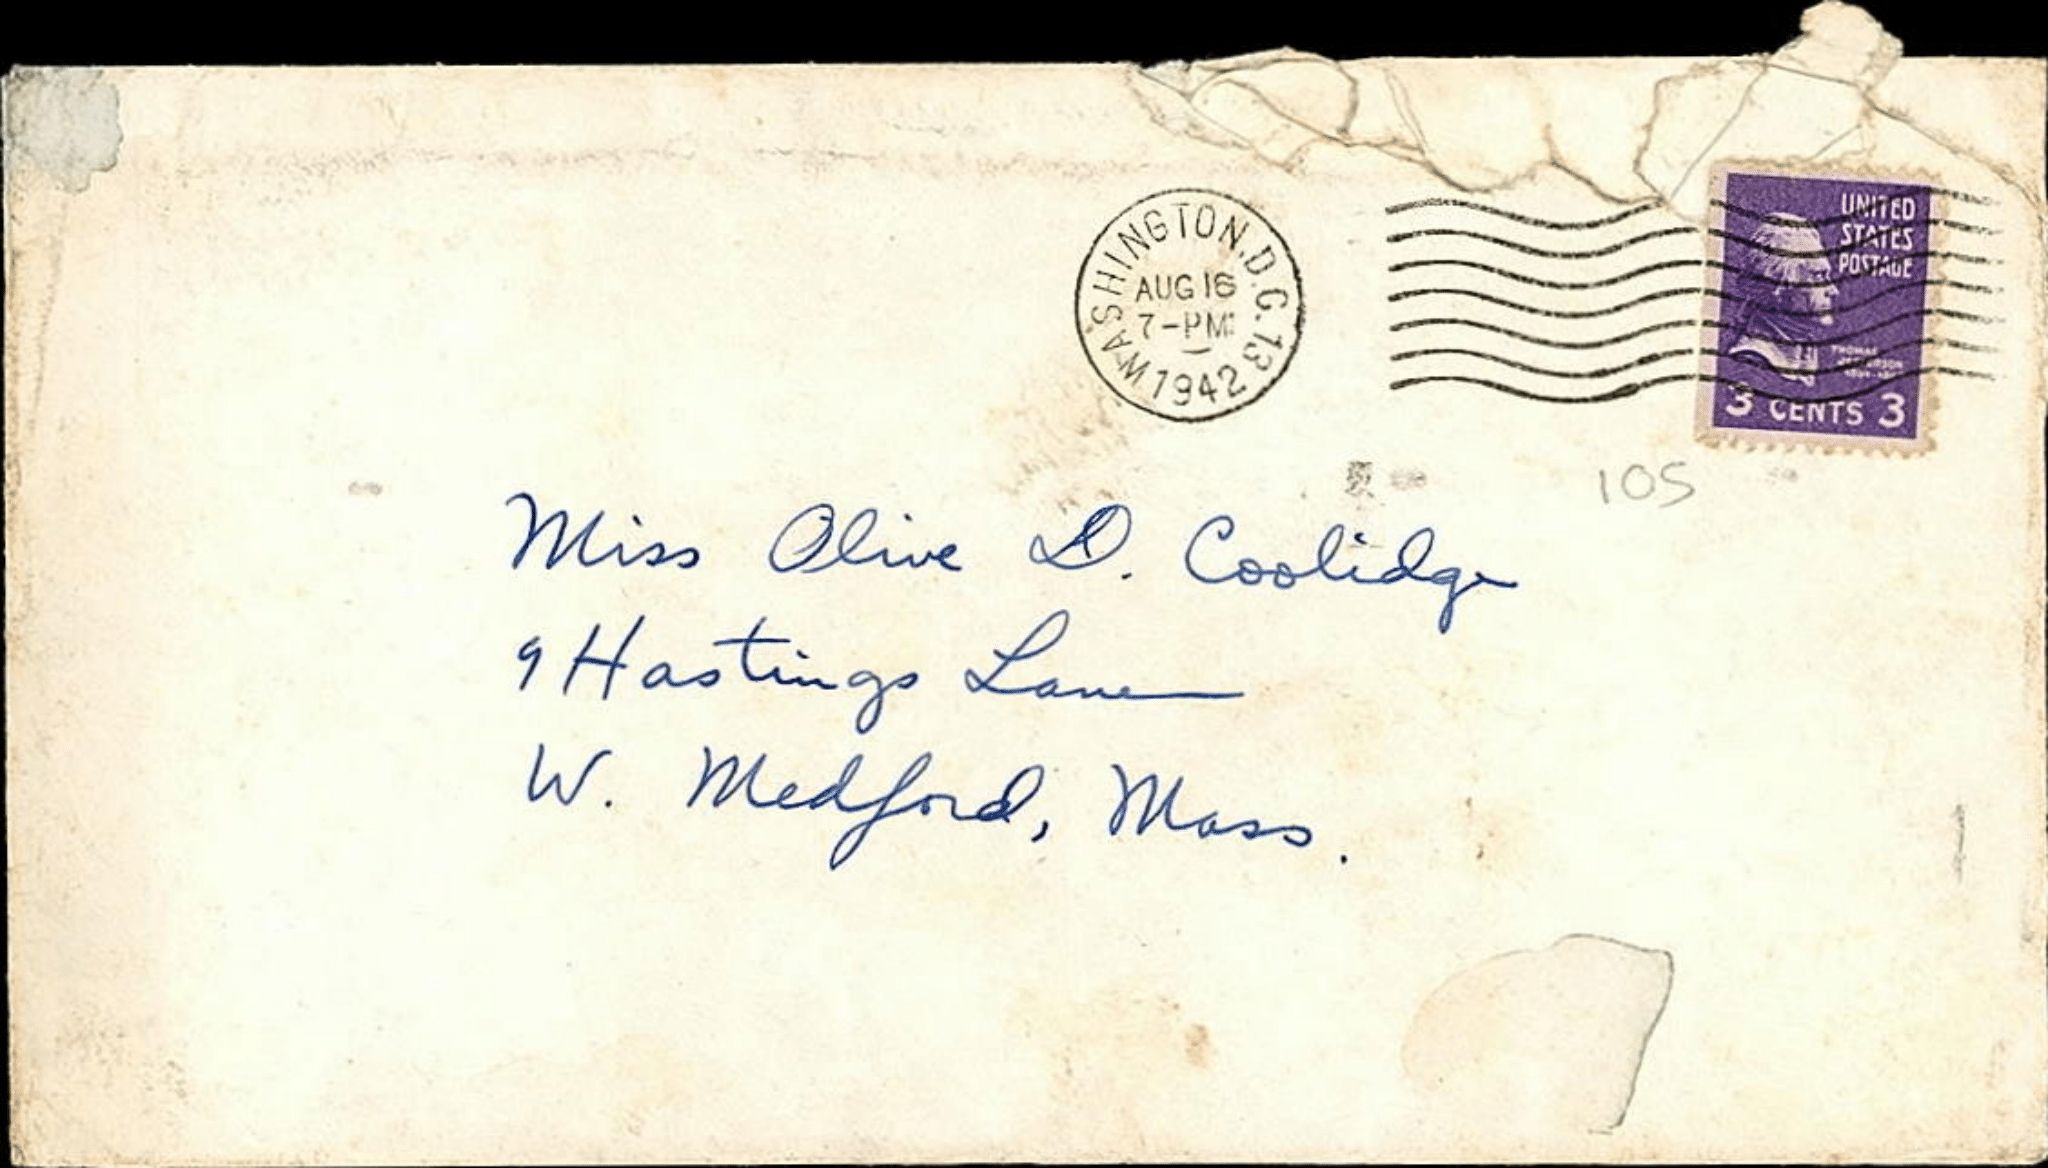 WASHINGTON, D.C. 13
AUG 16
7-PM
1942
UNITED
STATES
POSTAGE
THOMAS
JEFFERSON
3 CENTS 3
105
Miss Olive D. Coolidge
9 Hastings Lane
W. Medford, Mass.